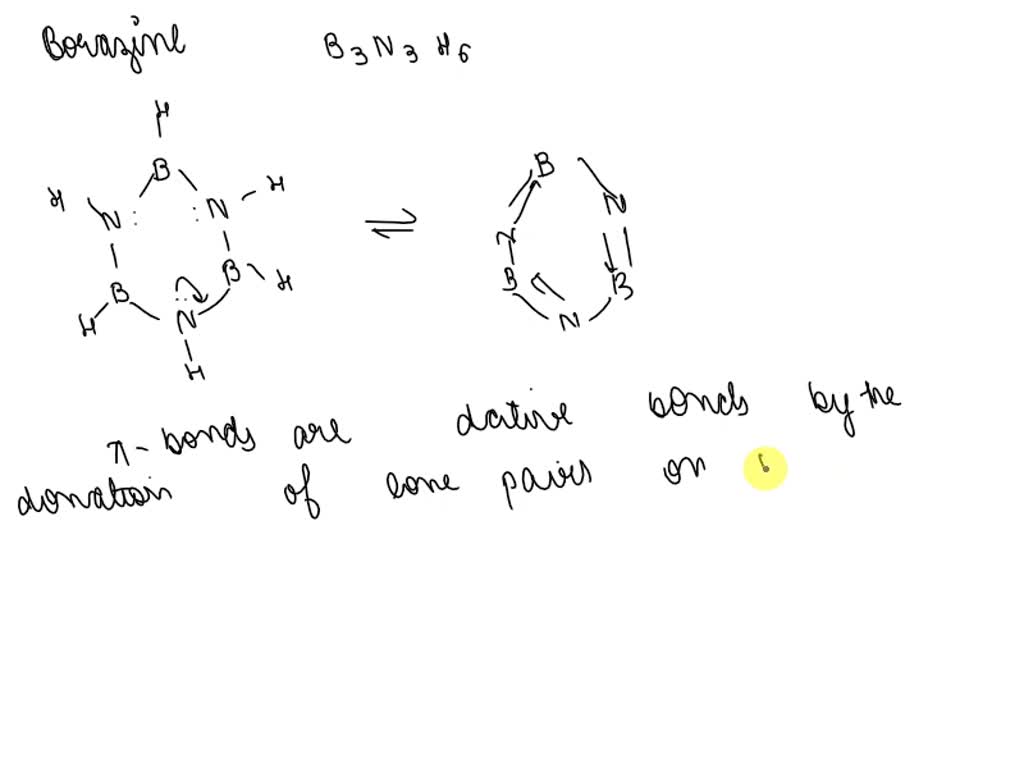 Borazine B3N3H6
H
B
H N: :N H
B B H
H :N
H
⇌
B
N N
B B
N
π-bonds are dative bonds by the
donation of lone pairs on